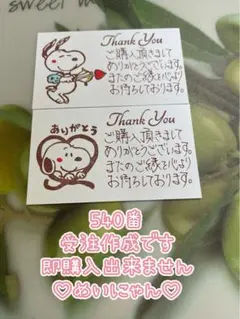 sweet m
Thank You
ご購入頂きまして
ありがとうございます。
またのご縁を心より
お待ちしております。
ありがとう
Thank You
ご購入頂きまして
ありがとうございます。
またのご縁を心より
お待ちしております。
540番
受注作成です
即購入出来ません
♡めいしゃん♡